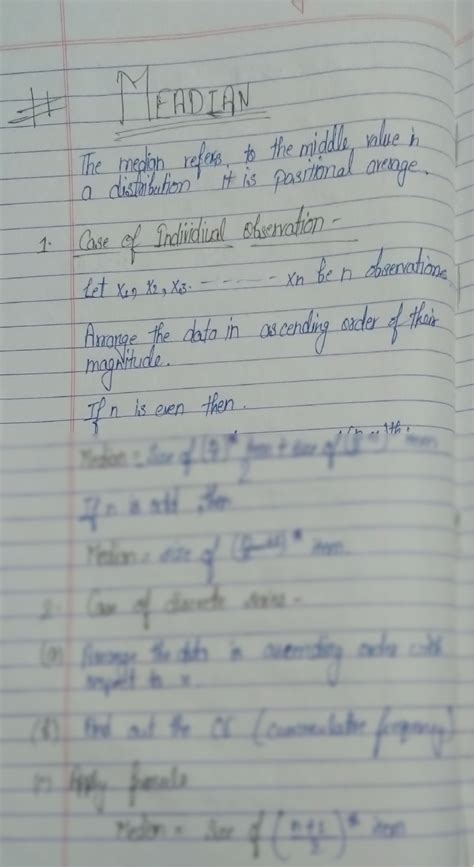 # MEADIAN
The median refers to the middle value in
a distribution it is positional average.
1. Case of Individual observation -
Let x₁, x₂, x₃. - - - - - - - xn be n observations
Arrange the data in ascending order of their
magnitude.
If n is even then.
Median = Size of
If n is odd then
Median = size of item
2. Case of discrete series -
(a) Arrange the data in ascending order with
respect to x.
(b) Find out the Cf (cummulative frequency)
Apply formula
Median = Size of item